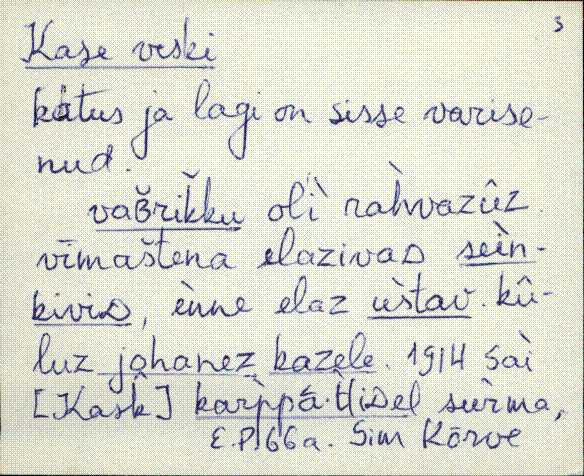 3
Kase veski
katus ja lagi on sisse varise-
nud.
vaʙrik̆ku olì ràhvazûz.
vīmaštena elazivaᴅ seìn-
kiviᴅ, ènne elaz ùstav. kû-
luz johanez kazele. 1914 saì
[Kask] surma,
E.P. 66a. Sim Kōrve